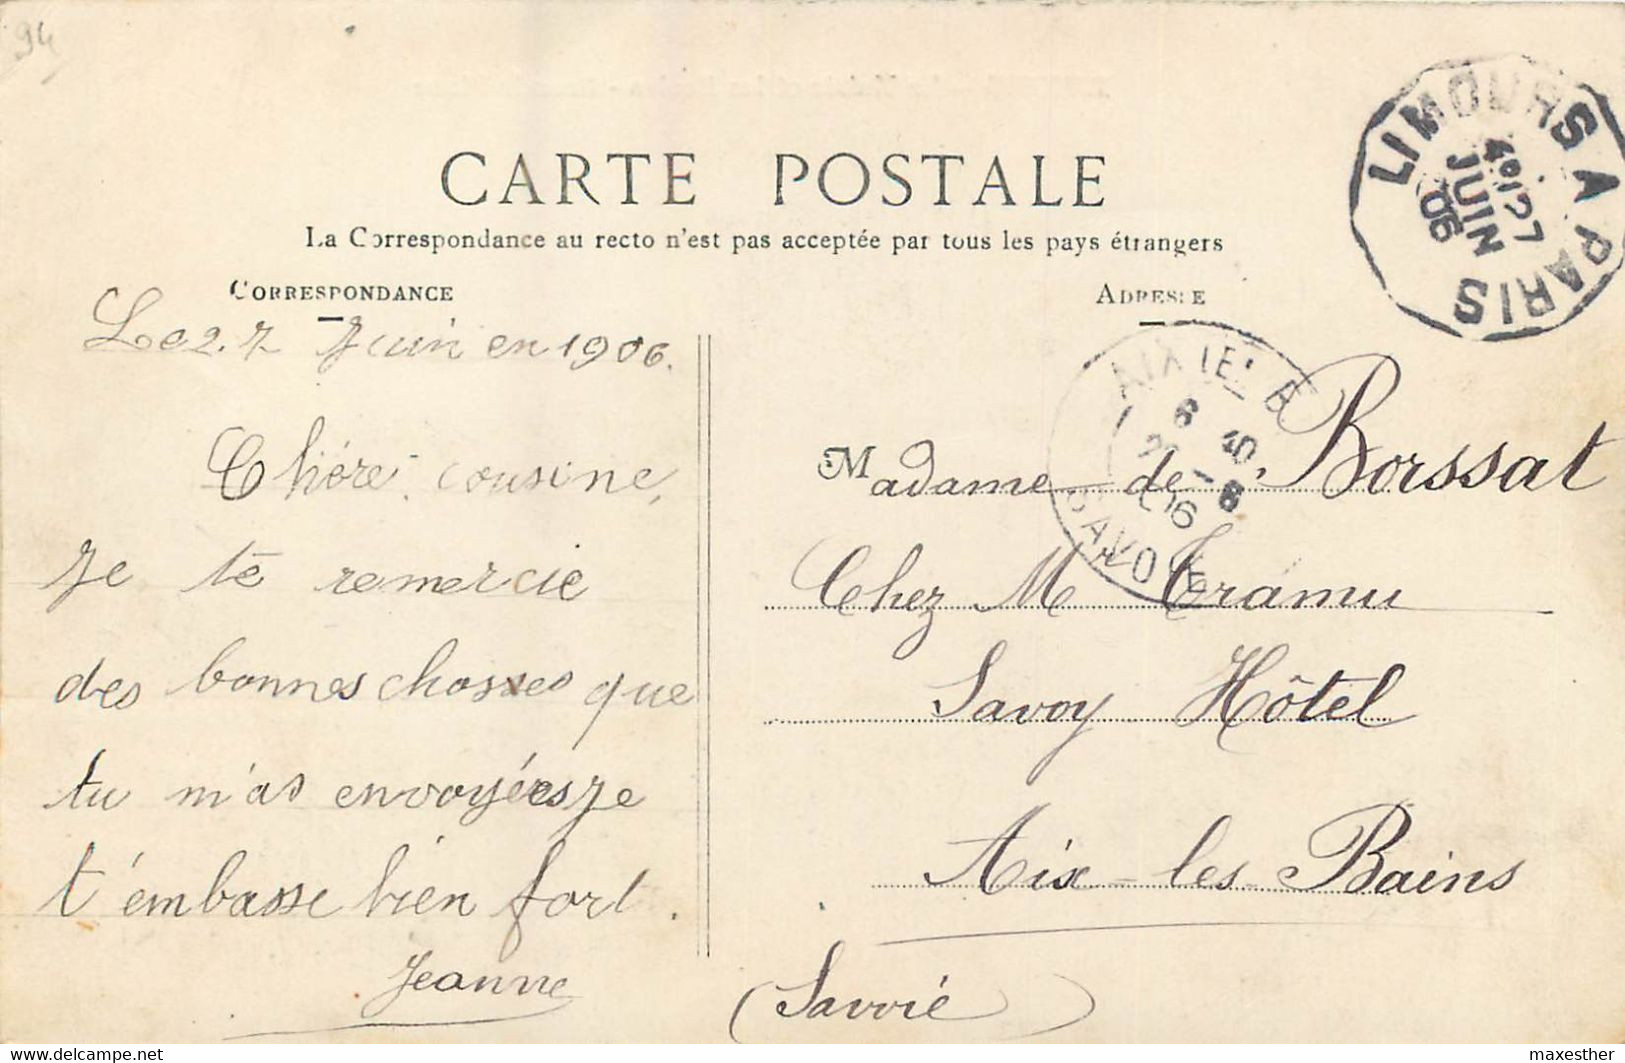 94
CARTE POSTALE
La Correspondance au recto n'est pas acceptée par tous les pays étrangers
CORRESPONDANCE
ADRESSE
LIMOURS A PARIS
4º 27
JUIN
06
Le 27 Juin en 1906.
Chére cousine,
Je te remercie
des bonnes choses que
tu m'as envoyées je
t'embasse bien fort.
Jeanne
AIX LES B
6 40
-6
06
SAVOIE
Madame de Borssat
Chez M Tramu
Savoy Hôtel
Aix-les-Bains
(Savoie)
Delcampe.net
maxesther